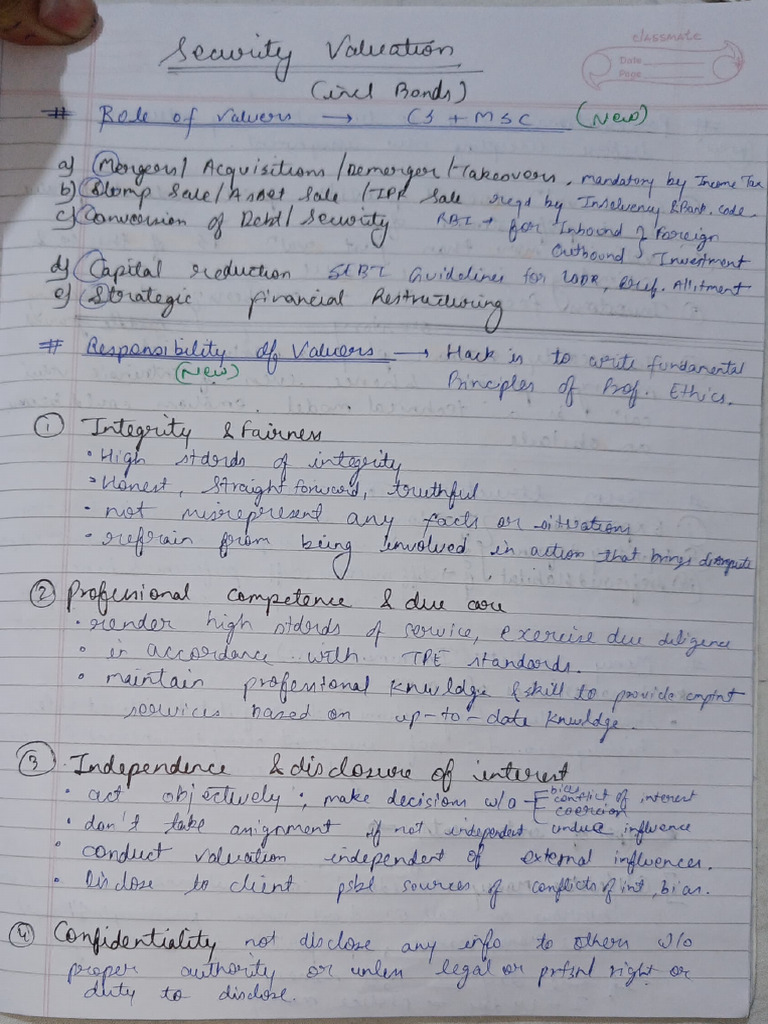 classmate
Date
Page
Security Valuation
(incl Bonds)
# Role of valuers → CS + MSC (New)
a) Mergers/ Acquisitions /Demerger /Takeovers, mandatory by Income Tax
b) Slump Sale/ Asset Sale /IPR Sale reqd by Insolvency & Bank. code.
c) Conversion of Debt/ Security RBI → for Inbound & Foreign
Outbound Investment
d) Capital reduction SEBI Guidelines for Pref. Allotment
e) Strategic financial Restructuring
# Responsibility of Valuers → Hack is to write fundamental
(New) Principles of Prof. Ethics.
① Integrity & fairness
• High stdrds of integrity
• Honest, straight forward, truthful
• not misrepresent any facts or situations
• refrain from being involved in action that brings disrepute
② Professional competence & due care
• render high stdrds of service, exercise due diligence
• in accordance with standards.
• maintain professional knwldge & skill to provide cmptnt
services based on up-to-date knwldge.
③ Independence & disclosure of interest
• act objectively; make decisions w/o bias
conflict of interest
coercion
• don't take assignment if not independent undue influence
• conduct valuation independent of external influences.
• Disclose to client psbl sources of conflicts of int, bias.
④ Confidentiality not disclose any info to others w/o
proper authority or unless legal or prfsnl right or
duty to disclose.